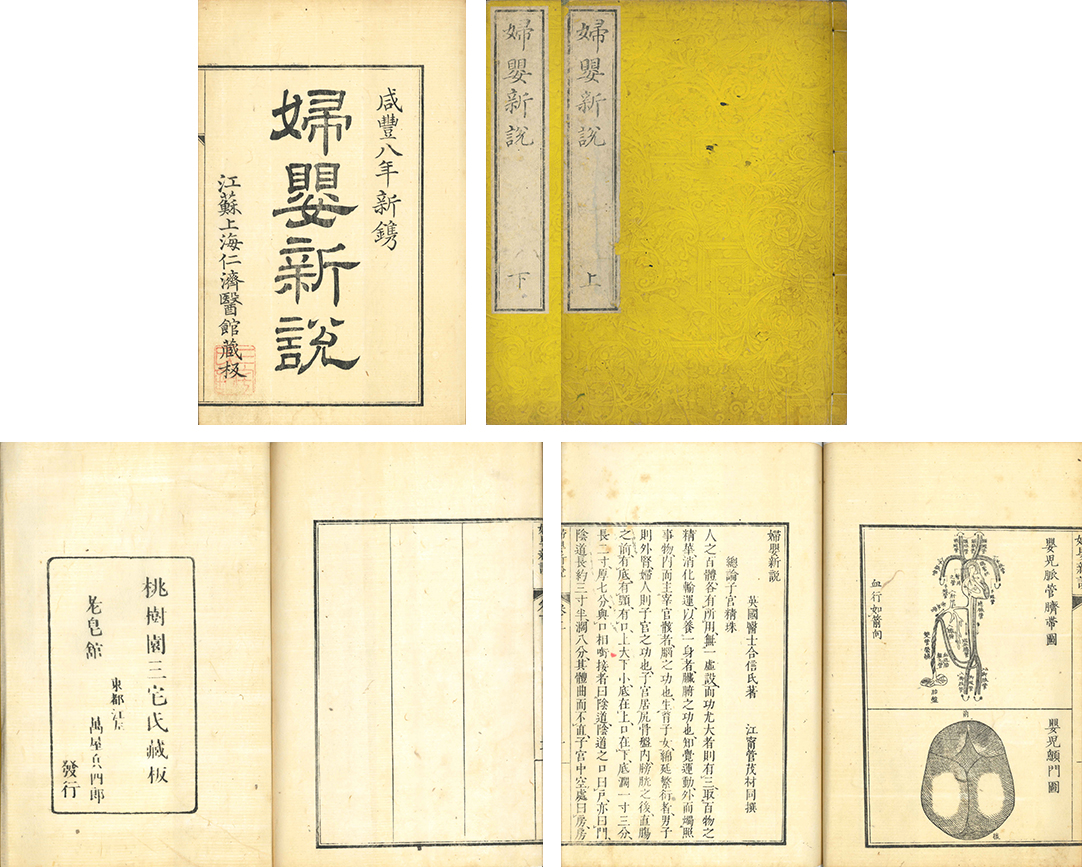 咸豐八年新鐫
婦嬰新說
江蘇上海仁濟醫館藏板
婦嬰新說 上
婦嬰新說 下
嬰兒脈管臍帶圖
血行如箭向
胎盤
嬰兒顖門圖
前
後
婦嬰新說
英國醫士合信氏著 江甯管茂材同撰
總論子宮精珠
人之百體各有所用無一虛設而功尤大者則有三取百物之
精華消化輸運以養一身者臟腑之功也知覺運動外而場照
事物內而主宰官骸者腦之功也生育子女綿延繁衍者男子
則外腎婦人則子宮之功也子宮居尻骨盤內膀胱之後直腸
之前有底有頭有口上大下小底在上口在下底濶一寸三分
長二寸厚七分與口相銜接者曰陰道陰道之口曰戶亦曰門
陰道長約三寸半濶八分其體曲而不直子宮中空處曰房房
桃樹園三宅氏藏板
老皂館
東都江左
萬屋兵四郎
發行